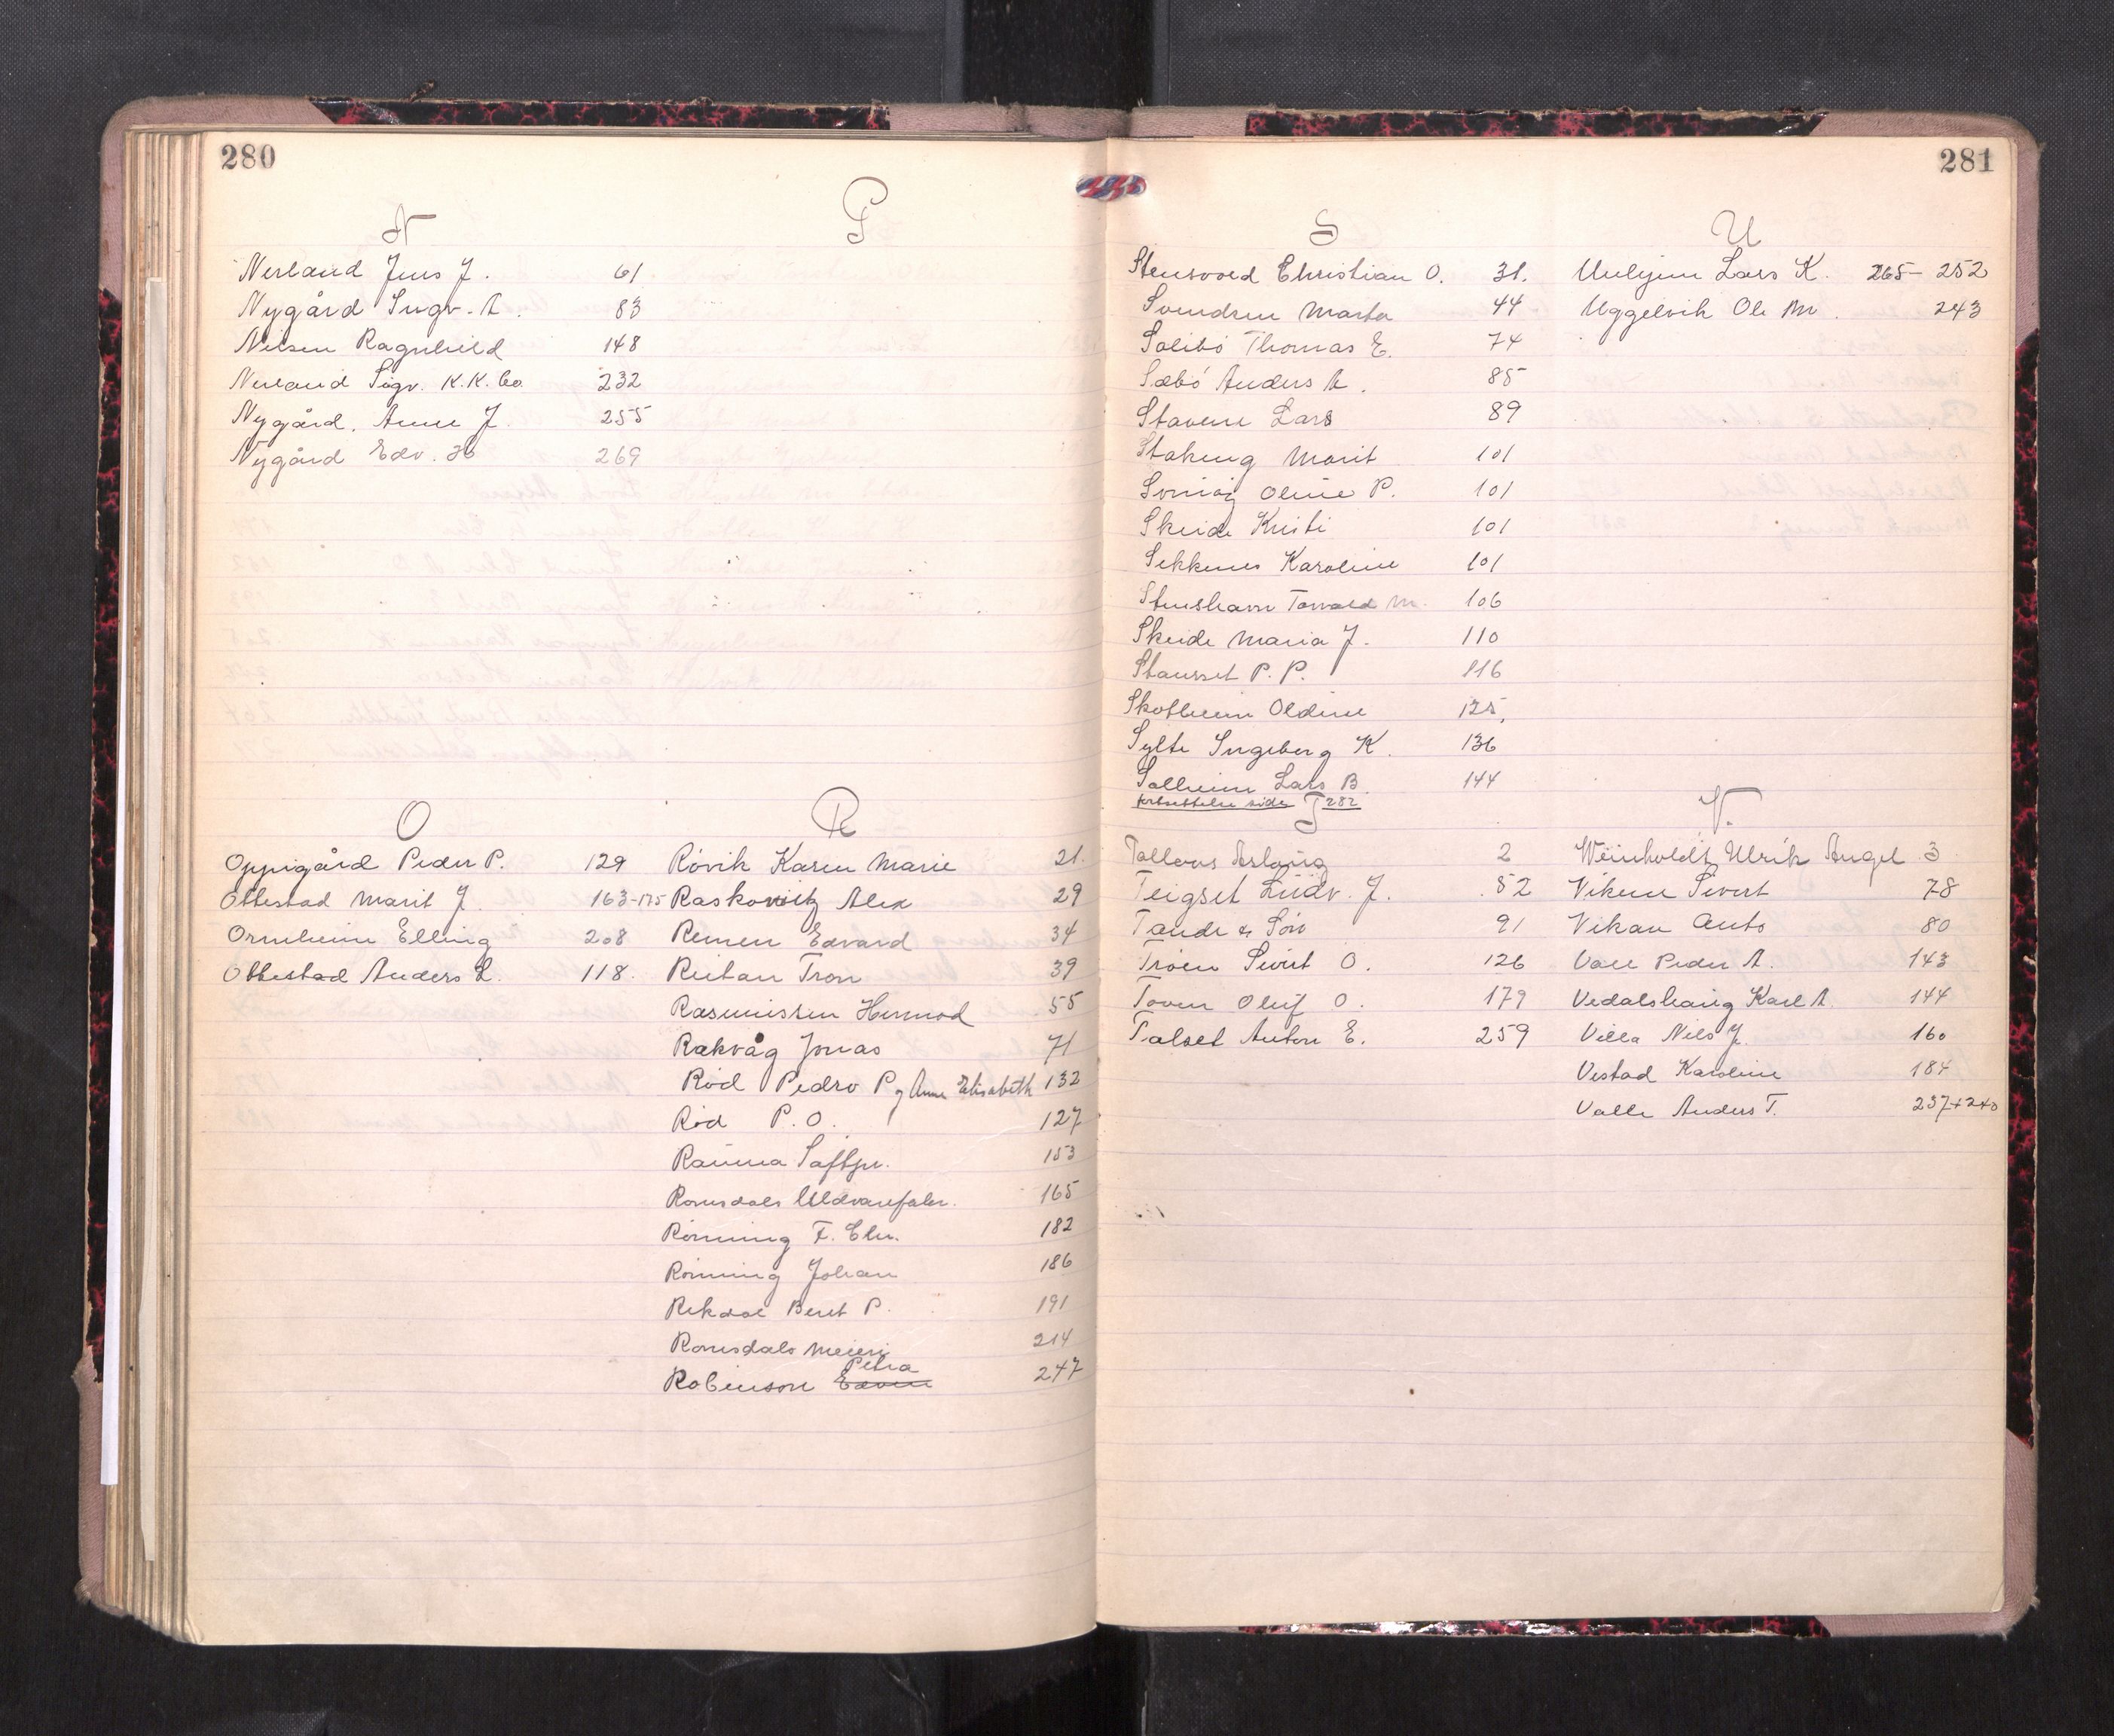 280
N
Nerland Jens J. 61
Nygård Ingv. A. 83
Nilsen Ragnhild 148
Nerland Sigv. K.K. Co 232
Nygård, Anne J. 255
Nygård Edv. 269
P
O
Oppigård Peder P. 129
Ottestad Marit J. 163-175
Ormheim Elling 208
Ottestad Anders L. 118.
R
Rövik Karen Marie 21.
Raskowitz Alex 29
Remen Edvard 34
Reitan Tron 39
Rasmussen Hermod 55
Rakvåg Jonas 71
Röd Pedro P og Anne Elisabeth 132
Röd P. O. 127
Rauma Saftfbr. 153
Romsdals Uldvarefabr. 165
Rönning F. Eln. 182
Rönning Johan 186
Rekdal Beret P. 191
Romsdals Meieri 214
Petra
Robinson 247
281
S
Stensvold Christian O. 31.
Svendsen Marta 44
Solibö Thomas E. 74
Sæbö Anders A. 85
Stavem Lars 89
Stokeng Marit 101
Oline P. 101
Skeide Kristi 101
Sekkenes Karoline 101
Stenshavn Torvald M. 106
Skeide Maria J. 110
P. P. 116
Skotheim Oldine 125,
Sylte Ingeborg K. 136
Solheim Lars B. 144
fortsettelse side 282
U
Lars K. 265-252
Uggelvik Ole M. 243
T
Tallous Aslaug 2
Teigset Ludv. J. 52
Tande & Sön 91
Tröen Sivert O. 126
Toven Oluf O. 179
Talset Anton E. 259
V.
Weinholdt Ulrik Angel 3
Viken Sivert 78
Vikan Auto 80
Voll Peder A. 143
Vedalshaug Karl A. 144
Villa Nils J. 160
Vestad Karoline 184
Valle Anders T. 237+240